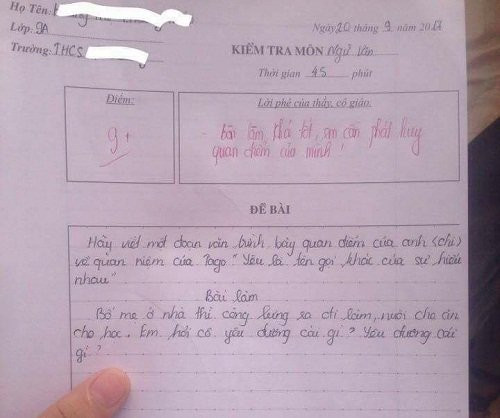 Họ Tên:
Lớp: 9A
Trường: THCS
Ngày 20 tháng 9 năm 2017
KIỂM TRA MÔN Ngữ Văn
Thời gian 45 phút
Điểm:
9+
Lời phê của thầy, cô giáo.
- Bài làm khá tốt, em cần phát huy
quan điểm của mình!
ĐỀ BÀI
Hãy viết một đoạn văn trình bày quan điểm của anh (chị)
về quan niệm của Tago "Yêu là tên gọi khác của sự hiểu
nhau"
Bài làm
Bố mẹ ở nhà thì còng lưng ra đi làm, nuôi cho ăn
cho học. Em hỏi cô yêu đương cái gì? Yêu đương cái
gì?